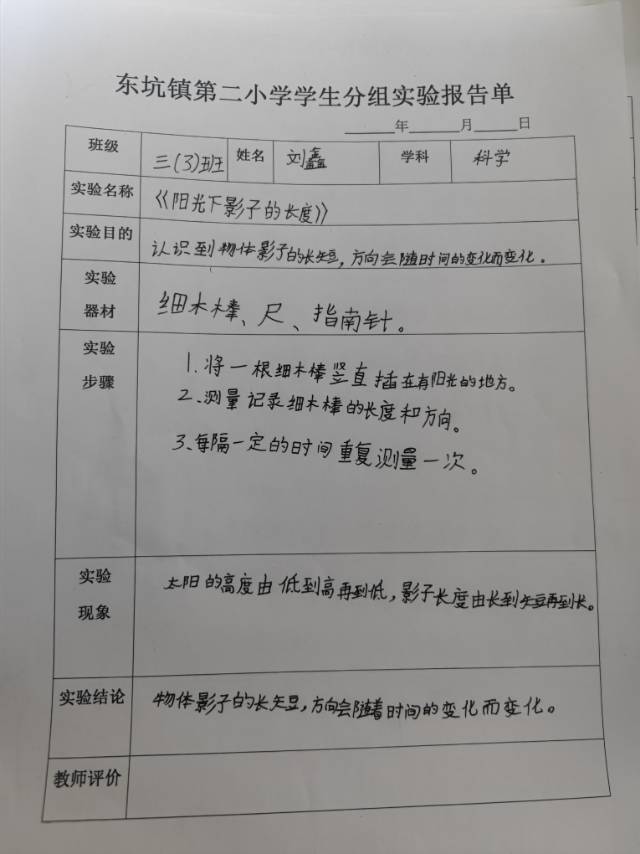 东坑镇第二小学学生分组实验报告单
年 月 日
班级 三(3)班 姓名 刘鑫 学科 科学
实验名称 《阳光下影子的长度》
实验目的 认识到物体影子的长短,方向会随时间的变化而变化。
实验
器材 细木棒、尺、指南针。
实验
步骤
1.将一根细木棒竖直插在有阳光的地方。
2、测量记录细木棒的长度和方向。
3、每隔一定的时间重复测量一次。
实验
现象
太阳的高度由低到高再到低,影子长度由长到短再到长。
实验结论 物体影子的长短,方向会随着时间的变化而变化。
教师评价